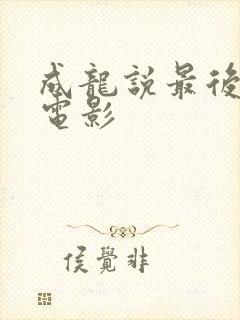 成龍説最後
電影
侯覺非